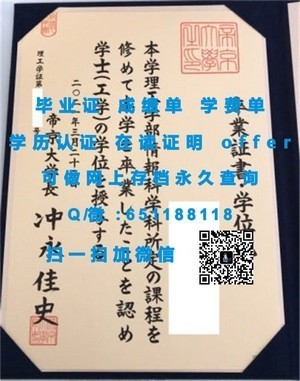 卒業証書・学位
本学理工学部情報科学科所定の課程を
修めて本学を卒業したことを認め
学士(工学)の学位を授与する
二〇一一年三月二十日
帝京大学長 冲永佳史
理工学証第
号
毕业证 成绩单 学费单
学历认证 在读证明 offer
可做网上存档永久查询
Q/微:651188118
扫一扫加微信